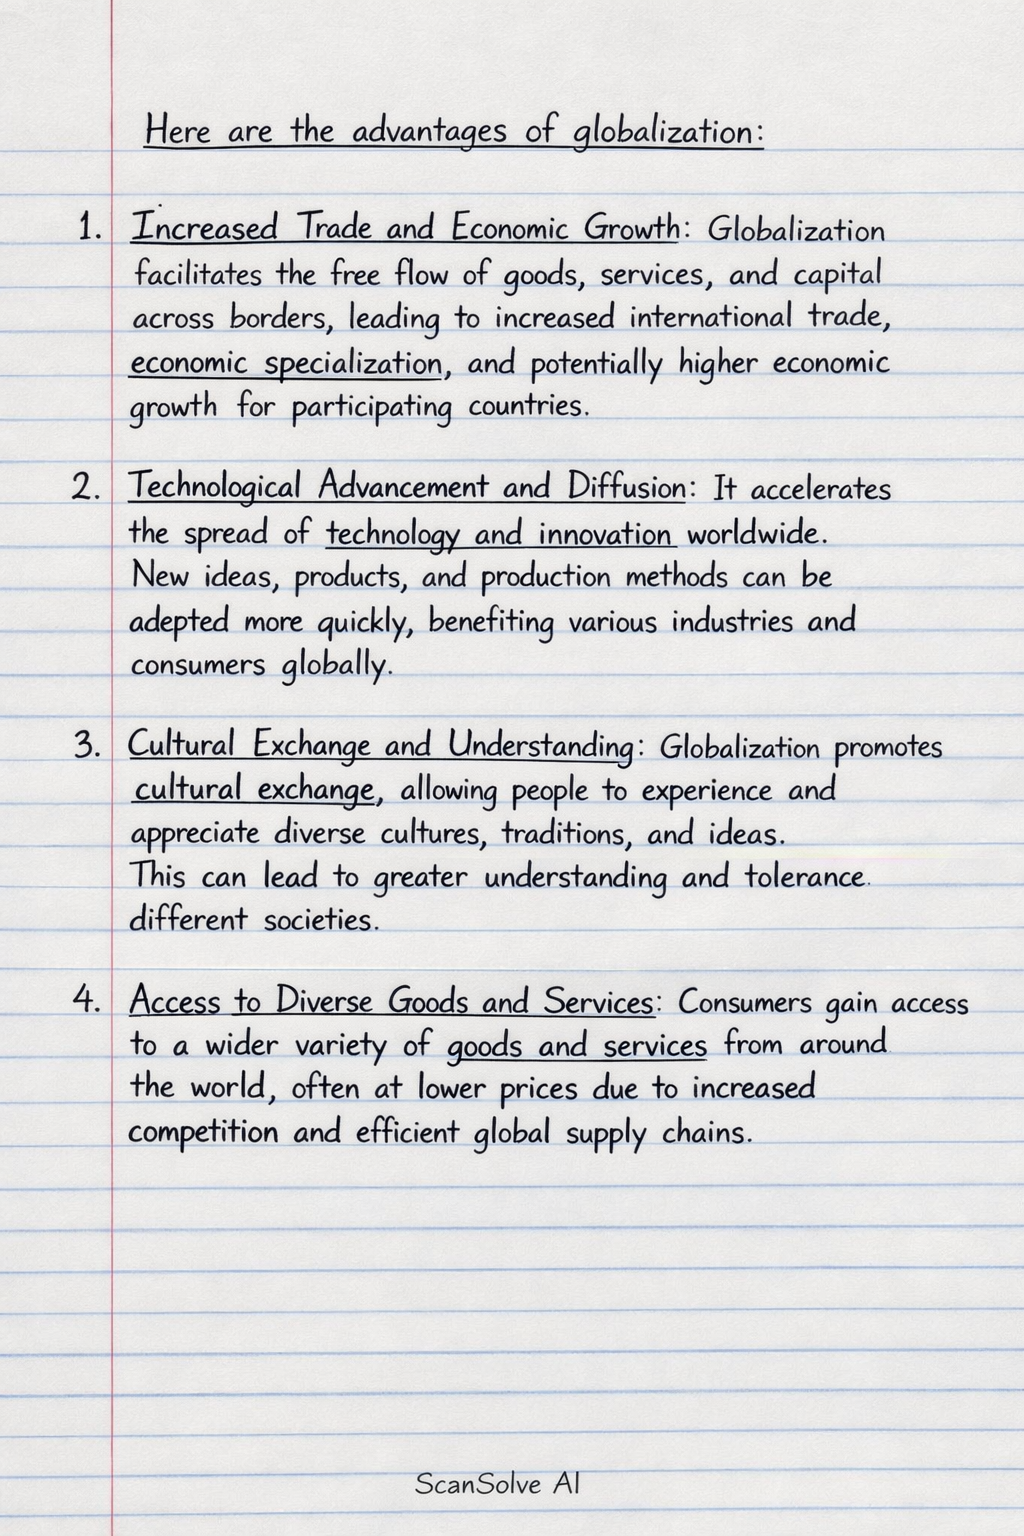 Here are the advantages of globalization:
1. Increased Trade and Economic Growth: Globalization
facilitates the free flow of goods, services, and capital
across borders, leading to increased international trade,
economic specialization, and potentially higher economic
growth for participating countries.
2. Technological Advancement and Diffusion: It accelerates
the spread of technology and innovation worldwide.
New ideas, products, and production methods can be
adepted more quickly, benefiting various industries and
consumers globally.
3. Cultural Exchange and Understanding: Globalization promotes
cultural exchange, allowing people to experience and
appreciate diverse cultures, traditions, and ideas.
This can lead to greater understanding and tolerance.
different societies.
4. Access to Diverse Goods and Services: Consumers gain access
to a wider variety of goods and services from around
the world, often at lower prices due to increased
competition and efficient global supply chains.
ScanSolve AI